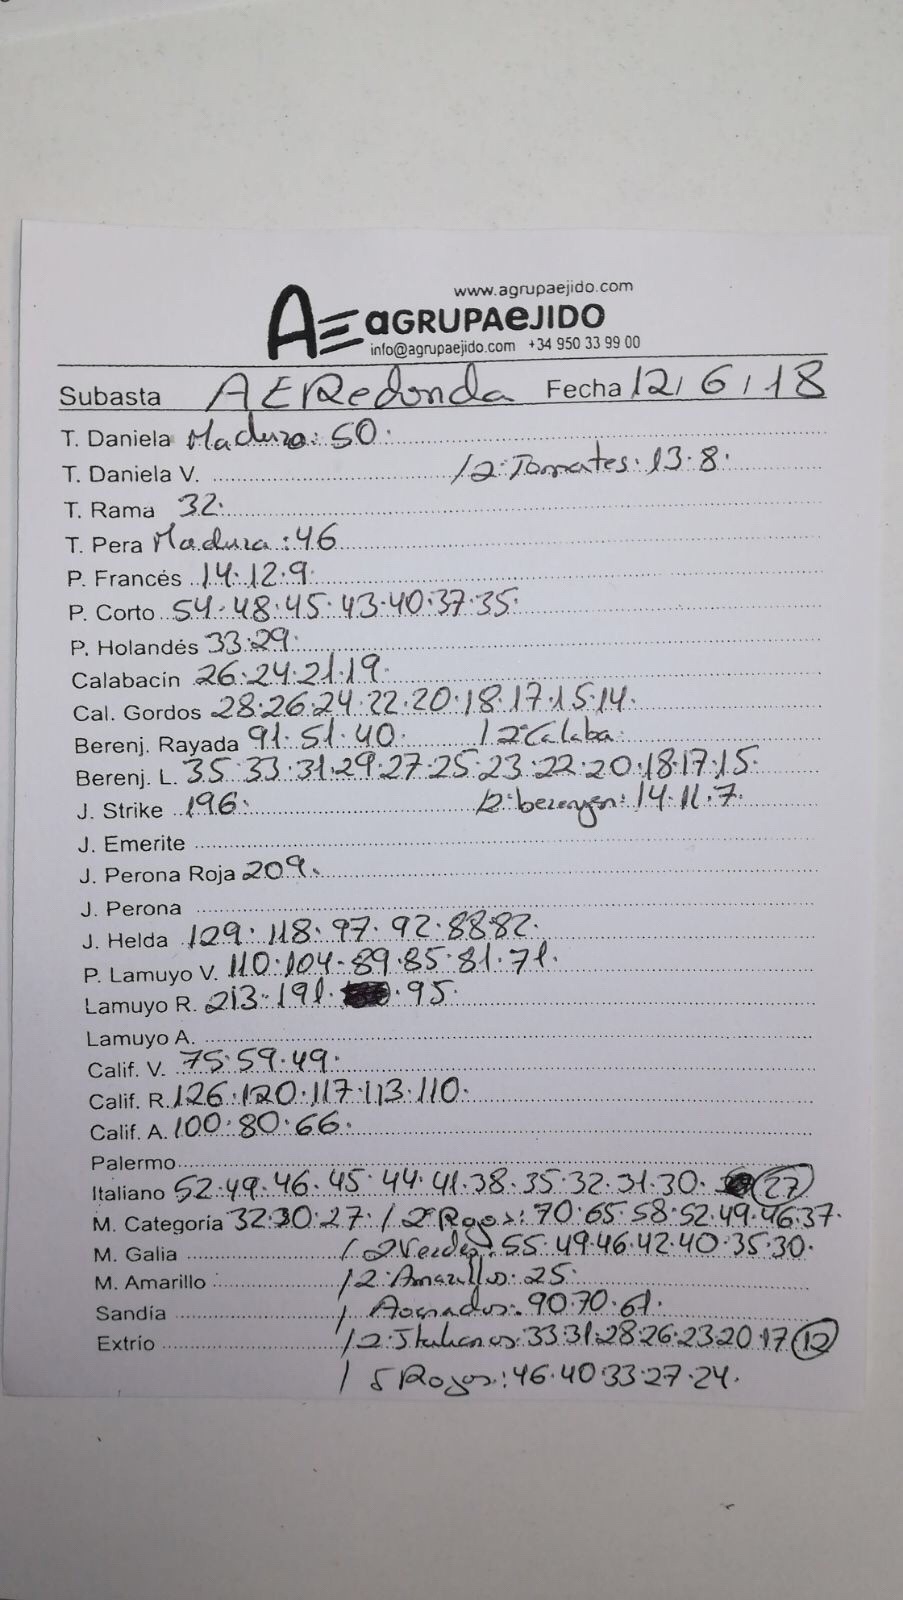 www.agrupaejido.com
AE AGRUPAEJIDO
info@agrupaejido.com +34 950 33 99 00
Subasta AERedonda Fecha 12/6/18
T. Daniela Madura: 50.
T. Daniela V. /2ª Tomates. 13.8.
T. Rama 32.
T. Pera Madura: 46
P. Francés 14.12.9.
P. Corto 54.48.45.43.40.37.35.
P. Holandés 33.29.
Calabacín 26.24.21.19.
Cal. Gordos 28.26.24.22.20.18.17.15.14.
Berenj. Rayada 91.51.40. / 2ª Calaba.
Berenj. L. 35.33.31.29.27.25.23.22.20.18.17.15.
J. Strike 196. /2ª berengen: 14.11.7.
J. Emerite
J. Perona Roja 209.
J. Perona
J. Helda 129.118.97.92.88.82.
P. Lamuyo V. 110.104.89.85.81.71.
Lamuyo R. 213.191. .95.
Lamuyo A.
Calif. V. 75.59.49.
Calif. R. 126.120.117.113.110.
Calif. A. 100.80.66.
Palermo
Italiano 52.49.46.45.44.41.38.35.32.31.30. 27
M. Categoría 32.30.27. / 2ª Rojos: 70.65.58.52.49.46.37.
M. Galia / 2 Verdes: 55.49.46.42.40.35.30.
M. Amarillo / 2ª Amarillos. 25.
Sandía / Asurados: 90.70.61.
Extrío / 2ª Italianos: 33.31.28.26.23.20.17 12
/ 5 Rojos: 46.40.33.27.24.